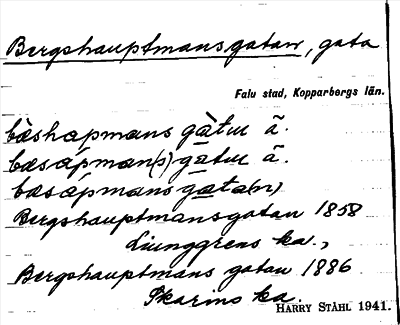 Bergshauptmansgatan, gata
Falu stad, Kopparbergs län.
bèshapmans gàtu ã.
bæsápman(s) gatu ã.
bæsápmans gata(n)
Bergshauptmansgatan 1858
Ljunggrens ka.,
Bergshauptmans gatan 1886
Skarins ka.
HARRY STÅHL 1941.